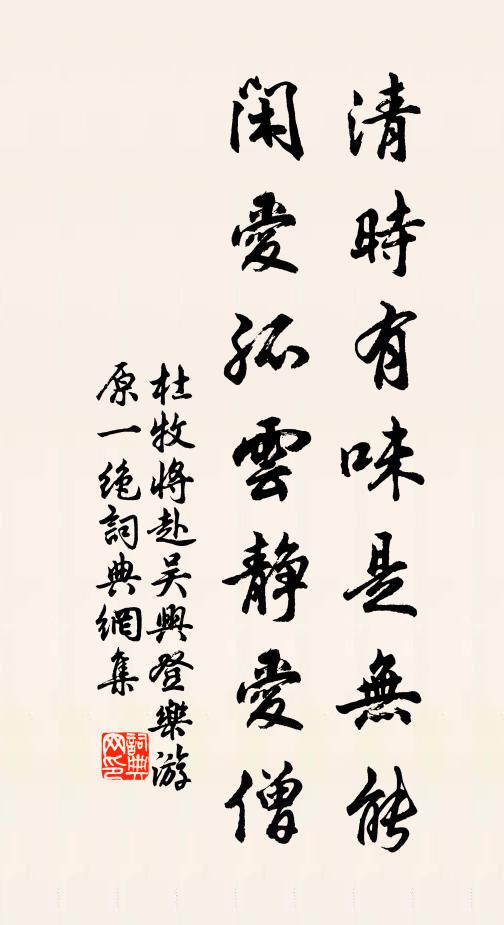 清時有味是無能
閑愛孤雲靜愛僧
杜牧將赴吴興登樂游
原一絶詞典網集
詞典
网印